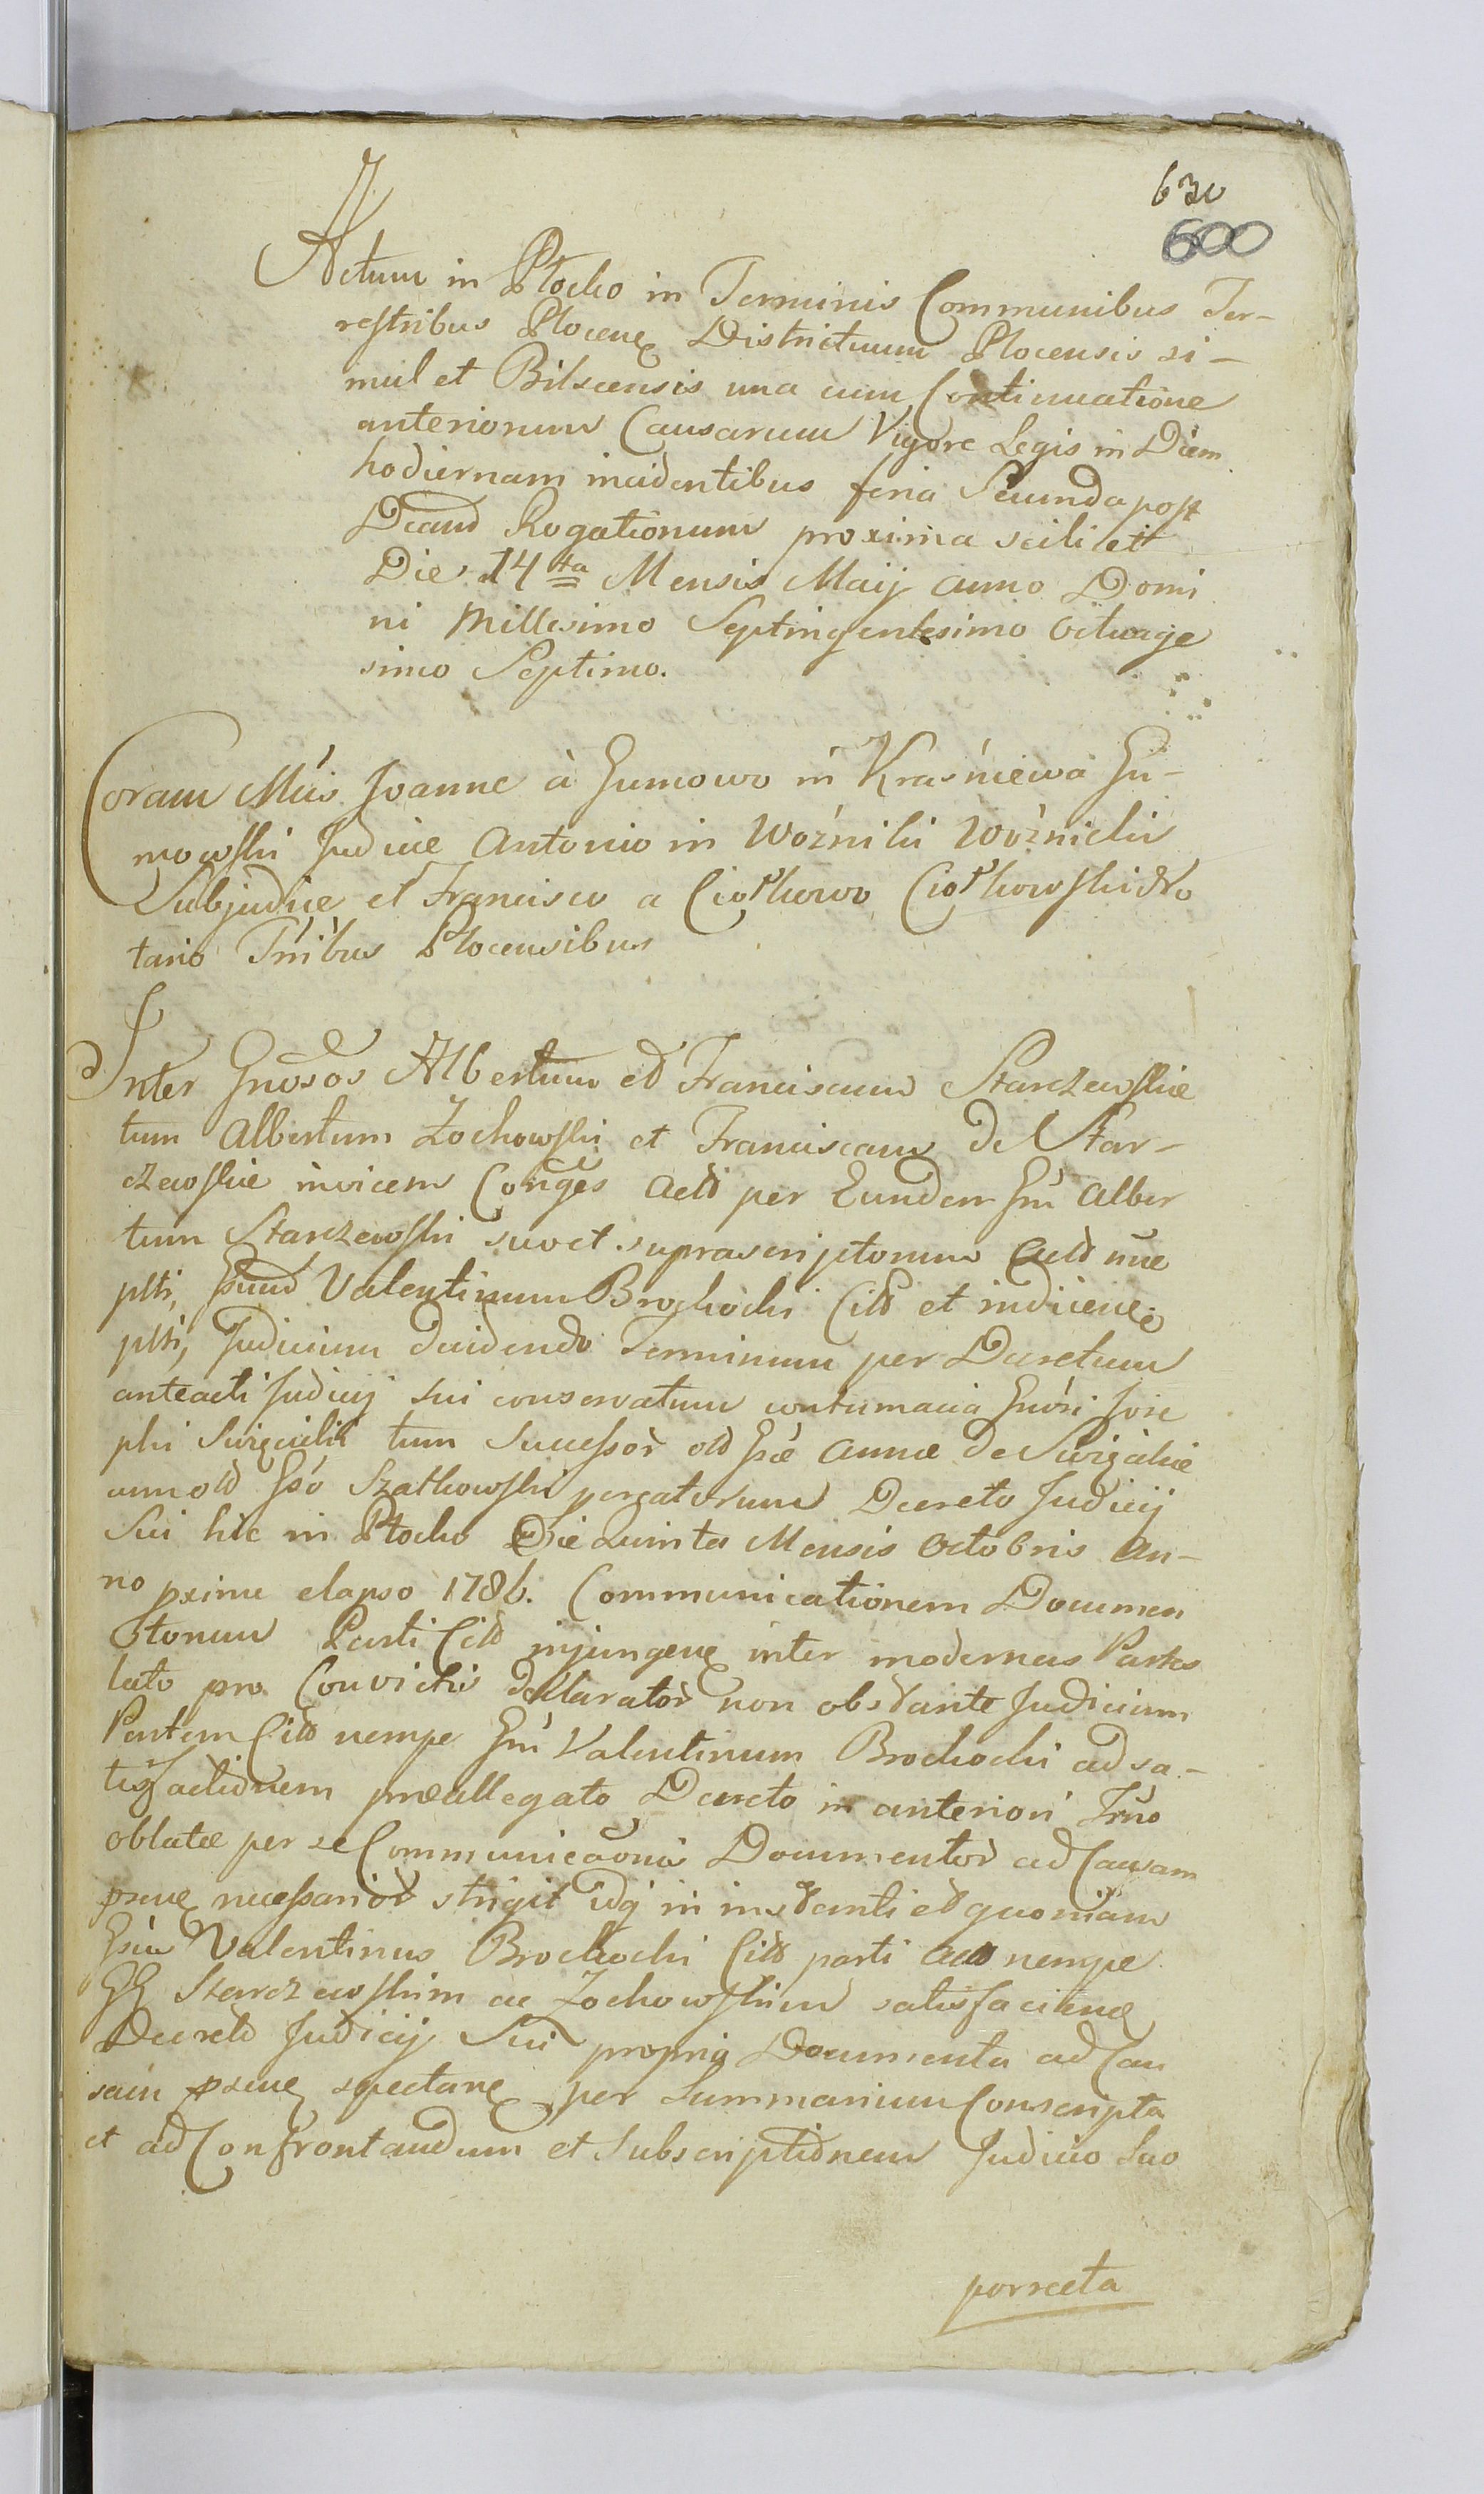 630
600
Actum in Płocko in Terminis Communibus Ter-
restribus Plocen Districtuum Plocensis si-
mul et Bilscensis una cum Continuatione
anteriorum Causarum Vigore Legis in Diem
hodiernam incidentibus feria Secunda post
Dcam Rogationum proxima scilicet
Die 14ta Mensis Maij anno Domi
ni Millesimo Septingentesimo Octuage
simo Septimo.
Coram Mcis Joanne à Gumowo in Kraśniewa Gu-
mowski Judice Antonio in Woźniki Woźnicki
Subjudice et Francisco a Ciołkowo Ciołkowski No
tario Tribus Plocensibus
Inter Gnosos Albertum et Franciscum Starczewskie
tum Albertum Żochowski et Franciscam de Star-
czewskie invicem Conges Acto per Eundem Gm Alber
tum Starczewski suo et suprascriptorum Acto nne
pltti, Gsum Valentinum Brochocki Citt et indicen
pltti, Judicium decidendo Terminum per Decretum
anteacti Judicij sui conservatum contumacia Gnosi Jose
phi tum Successor olo Gsae Annae de
cum olo Gso Szatkowski procreatorum Decreto Judicij
Sui hic in Płocko Die Quinta Mensis Octobris An-
no pximе elapso 1786. Communicationem Documen
torum Parti Citt injungen inter modernas Partes
lato pro Convictis declarator non obstante Judicium
Partem Citt nempe Gm Valentinum Brochocki ad sa-
tisfactionem praeallegato Decreto in anteriori Trno
oblatae per se Communicaonis Documentor ad Causam
psene necessarior strigit idq in instanti et quoniam
Gsus Valentinus Brochocki Citt parti Acto nempe
GG Starczewskim ac Żochowskim satisfaciendo
Decreto Judicij Sui propria Documenta ad Cau
sam psene spectane per Summarium Conscripta
et ad Confrontandum et Subscriptionem Judicio Suo
porrecta